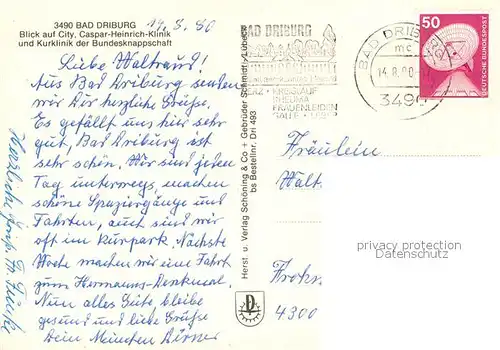 3490 BAD DRIBURG
Blick auf City, Caspar-Heinrich-Klinik
und Kurklinik der Bundesknappschaft
14.8.80
Liebe Waltraud!
Aus Bad Driburg senden
wir Dir herzliche Grüße.
Es gefällt uns hier sehr
gut, Bad Driburg ist
sehr schön. Wir sind jeden
Tag unterwegs, machen
schöne Spaziergänge und
Fahrten, auch sind wir
oft im Kurpark. Nächste
Woche machen wir eine Fahrt
zum Hermanns-Denkmal.
Nun alles Gute bleibe
gesund und liebe Grüße
Dein
Herzliche Grüße
Herst. u. Verlag Schöning & Co + Gebrüder Schmidt, Lübeck
bs Bestellnr. Dri 493
BAD DRIBURG
HERZ • KREISLAUF
RHEUMA
FRAUENLEIDEN
GALLE •
BAD DRIBURG
mc
14.8.80
3490
50
DEUTSCHE BUNDESPOST
Fräulein
Walt.
privacy protection
Datenschutz
4300